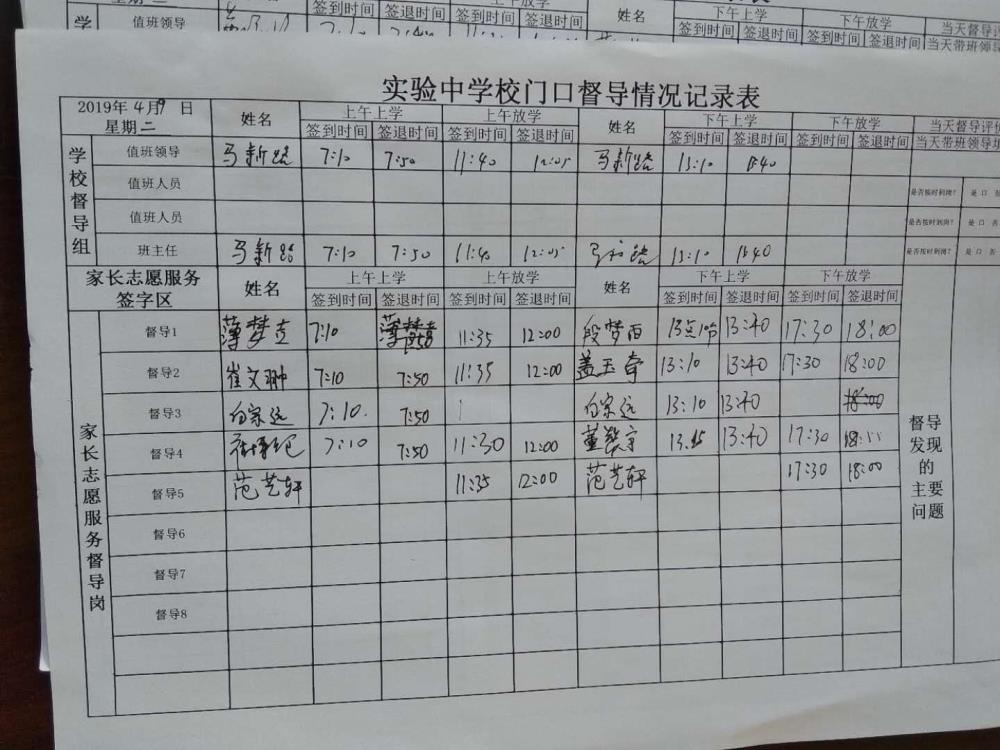 值班领导
签到时间 签退时间
姓名
下午上学 下午放学
签到时间 签退时间 签到时间 签退时间
当天带班领导
实验中学校门口督导情况记录表
2019年4月9日 星期二 姓名 上午上学 上午放学 姓名 下午上学 下午放学 当天督导评价
签到时间 签退时间 签到时间 签退时间 签到时间 签退时间 签到时间 签退时间 当天带班领导填
学校督导组
值班领导 马新路 7:10 7:50 11:40 12:05 马新路 13:10 1340
值班人员 是否按时到岗? 是 口 否
值班人员 是否按时到岗? 是 口 否
班主任 马新路 7:10 7:50 11:40 12:05 马新路 13:10 1340 是否按时到岗? 是 口 否
家长志愿服务签字区 姓名 上午上学 上午放学 姓名 下午上学 下午放学
签到时间 签退时间 签到时间 签退时间 签到时间 签退时间 签到时间 签退时间
家长志愿服务督导岗
督导1 薄梦 7:10 11:35 12:00 段梦 13:40 17:30 18:00
督导2 崔文翀 7:10 7:50 11:35 12:00 盖玉 13:10 13:40 17:30 18:00
督导3 白宗远 7:10. 7:50 白宗远 13:10 13:40 18:00
督导4 7:10 7:50 11:30 12:00 董 13:40 17:30
督导5 范艺轩 11:35 12:00 范艺轩 17:30 18:00
督导6
督导7
督导8
督导发现的主要问题